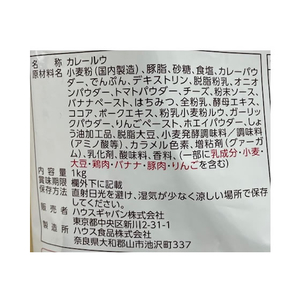 名　　　称 カレールウ
原材料名 小麦粉(国内製造)、豚脂、砂糖、食塩、カレーパウ
ダー、でんぷん、デキストリン、脱脂粉乳、オニオ
ンパウダー、トマトパウダー、チーズ、粉末ソース、
バナナペースト、はちみつ、全粉乳、酵母エキス、
ココア、ポークエキス、粉乳小麦粉ルウ、ガーリッ
クパウダー、りんごペースト、ホエイパウダー、しょ
う油加工品、脱脂大豆、小麦発酵調味料／調味料
(アミノ酸等)、カラメル色素、増粘剤(グァーガ
ム)、乳化剤、酸味料、香料、(一部に乳成分・小麦・
大豆・鶏肉・バナナ・豚肉・りんごを含む)
内容量 1kg
賞味期限 欄外下に記載
保存方法 直射日光を避け、湿気が少なく涼しい場所で保存
してください。
販売者 ハウスギャバン株式会社
東京都中央区新川2-31-1
製造所 ハウス食品株式会社
奈良県大和郡山市池沢町337